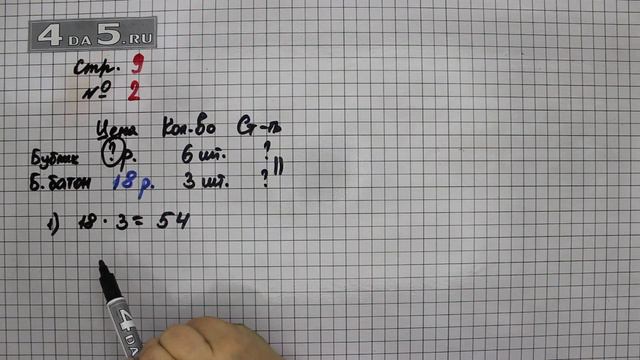 4 DA 5.RU
Стр. 9
№ 2
Цена Кол-во Ст-ть
Бублик ? р. 6 шт. ?
Б. батон 18 р. 3 шт. ?
1) 18 · 3 = 54
4 DA